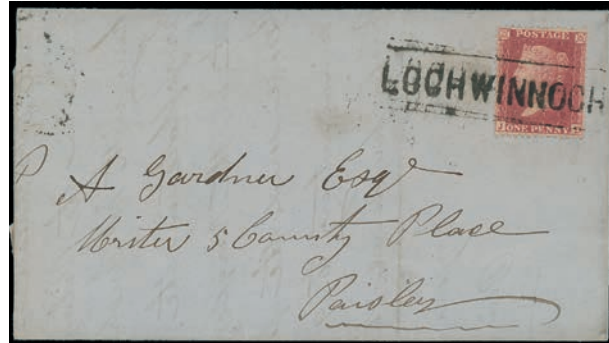 POSTAGE
LOCHWINNOCH
ONE PENNY
A Gardner Esqr
Writer 5 County Place
Paisley